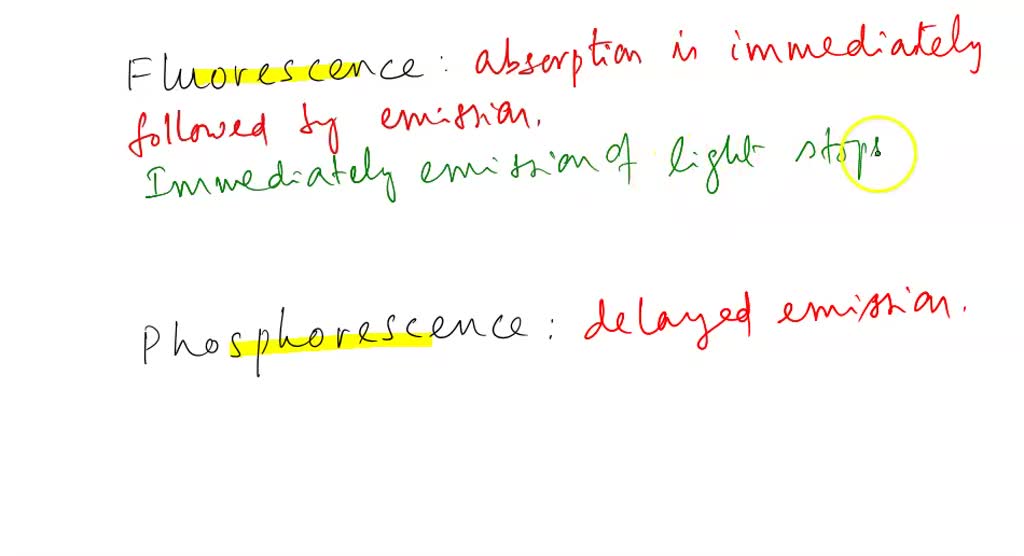 Fluorescence: absorption is immediately
followed by emission.
Immediately emission of light stops
Phosphorescence: delayed emission.